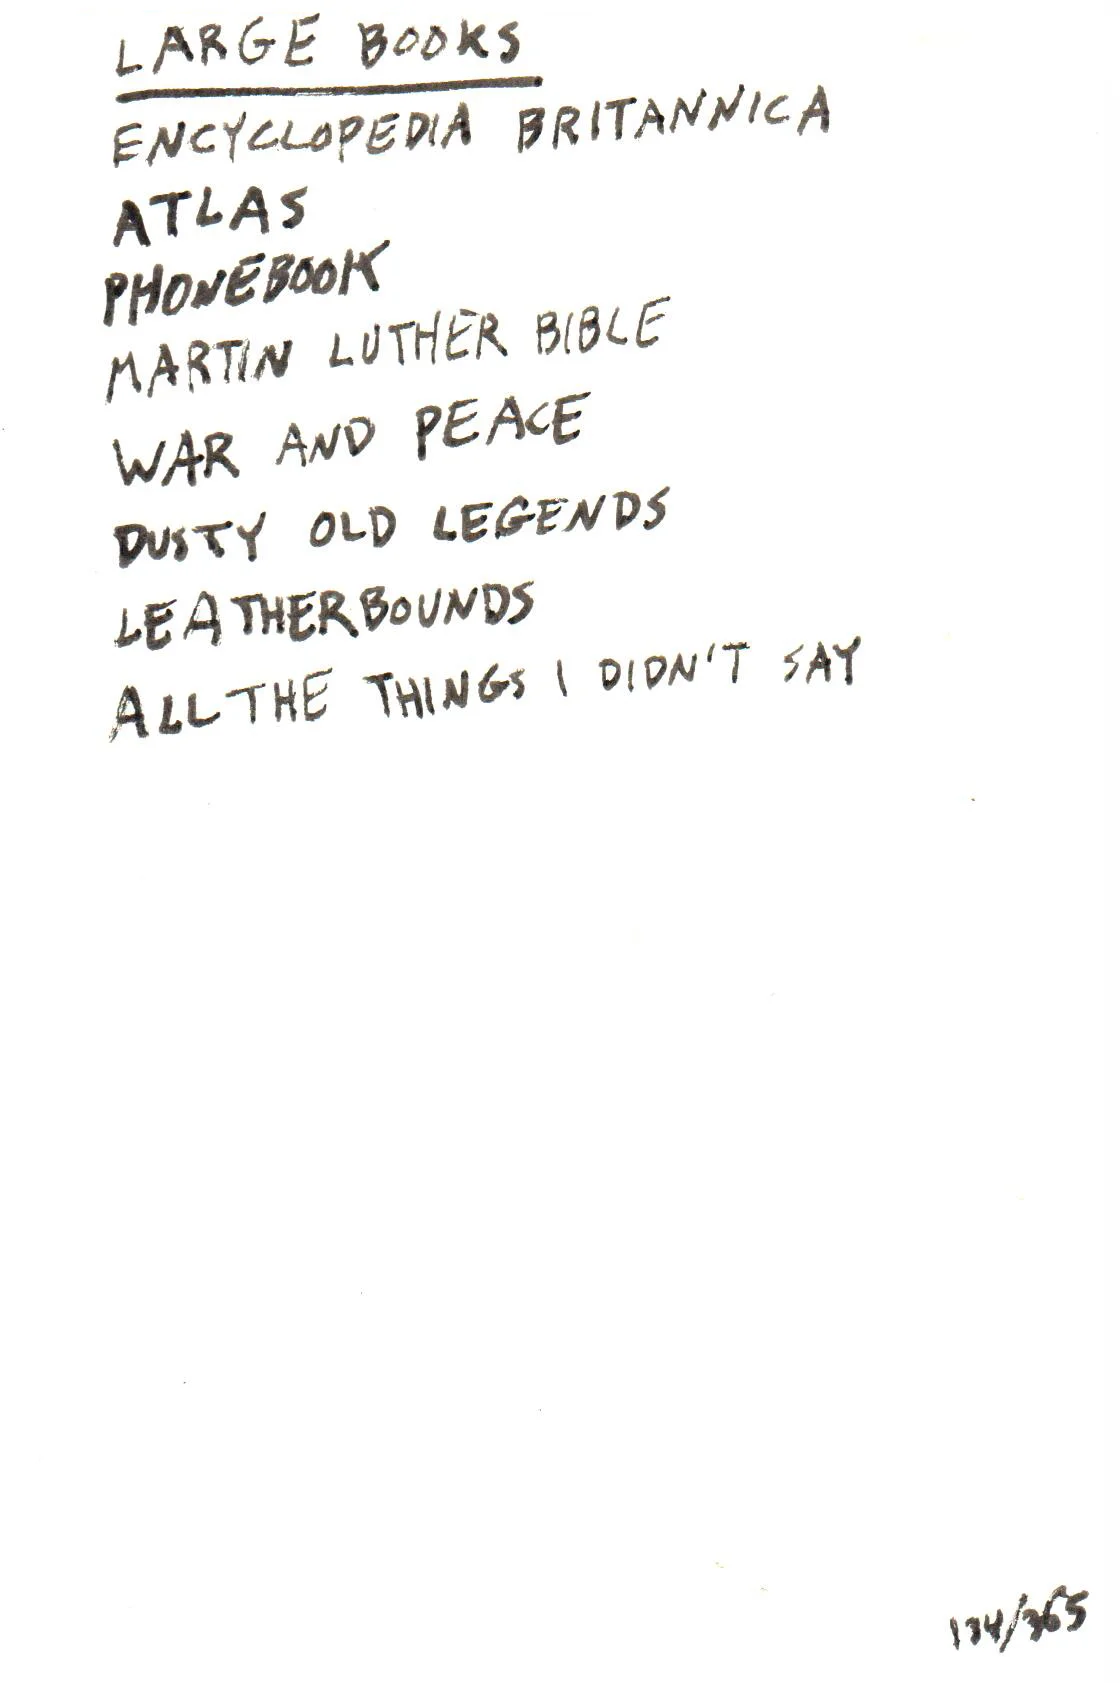 LARGE BOOKS
ENCYCLOPEDIA BRITANNICA
ATLAS
PHONEBOOK
MARTIN LUTHER BIBLE
WAR AND PEACE
DUSTY OLD LEGENDS
LEATHERBOUNDS
ALL THE THINGS I DIDN'T SAY
134/365